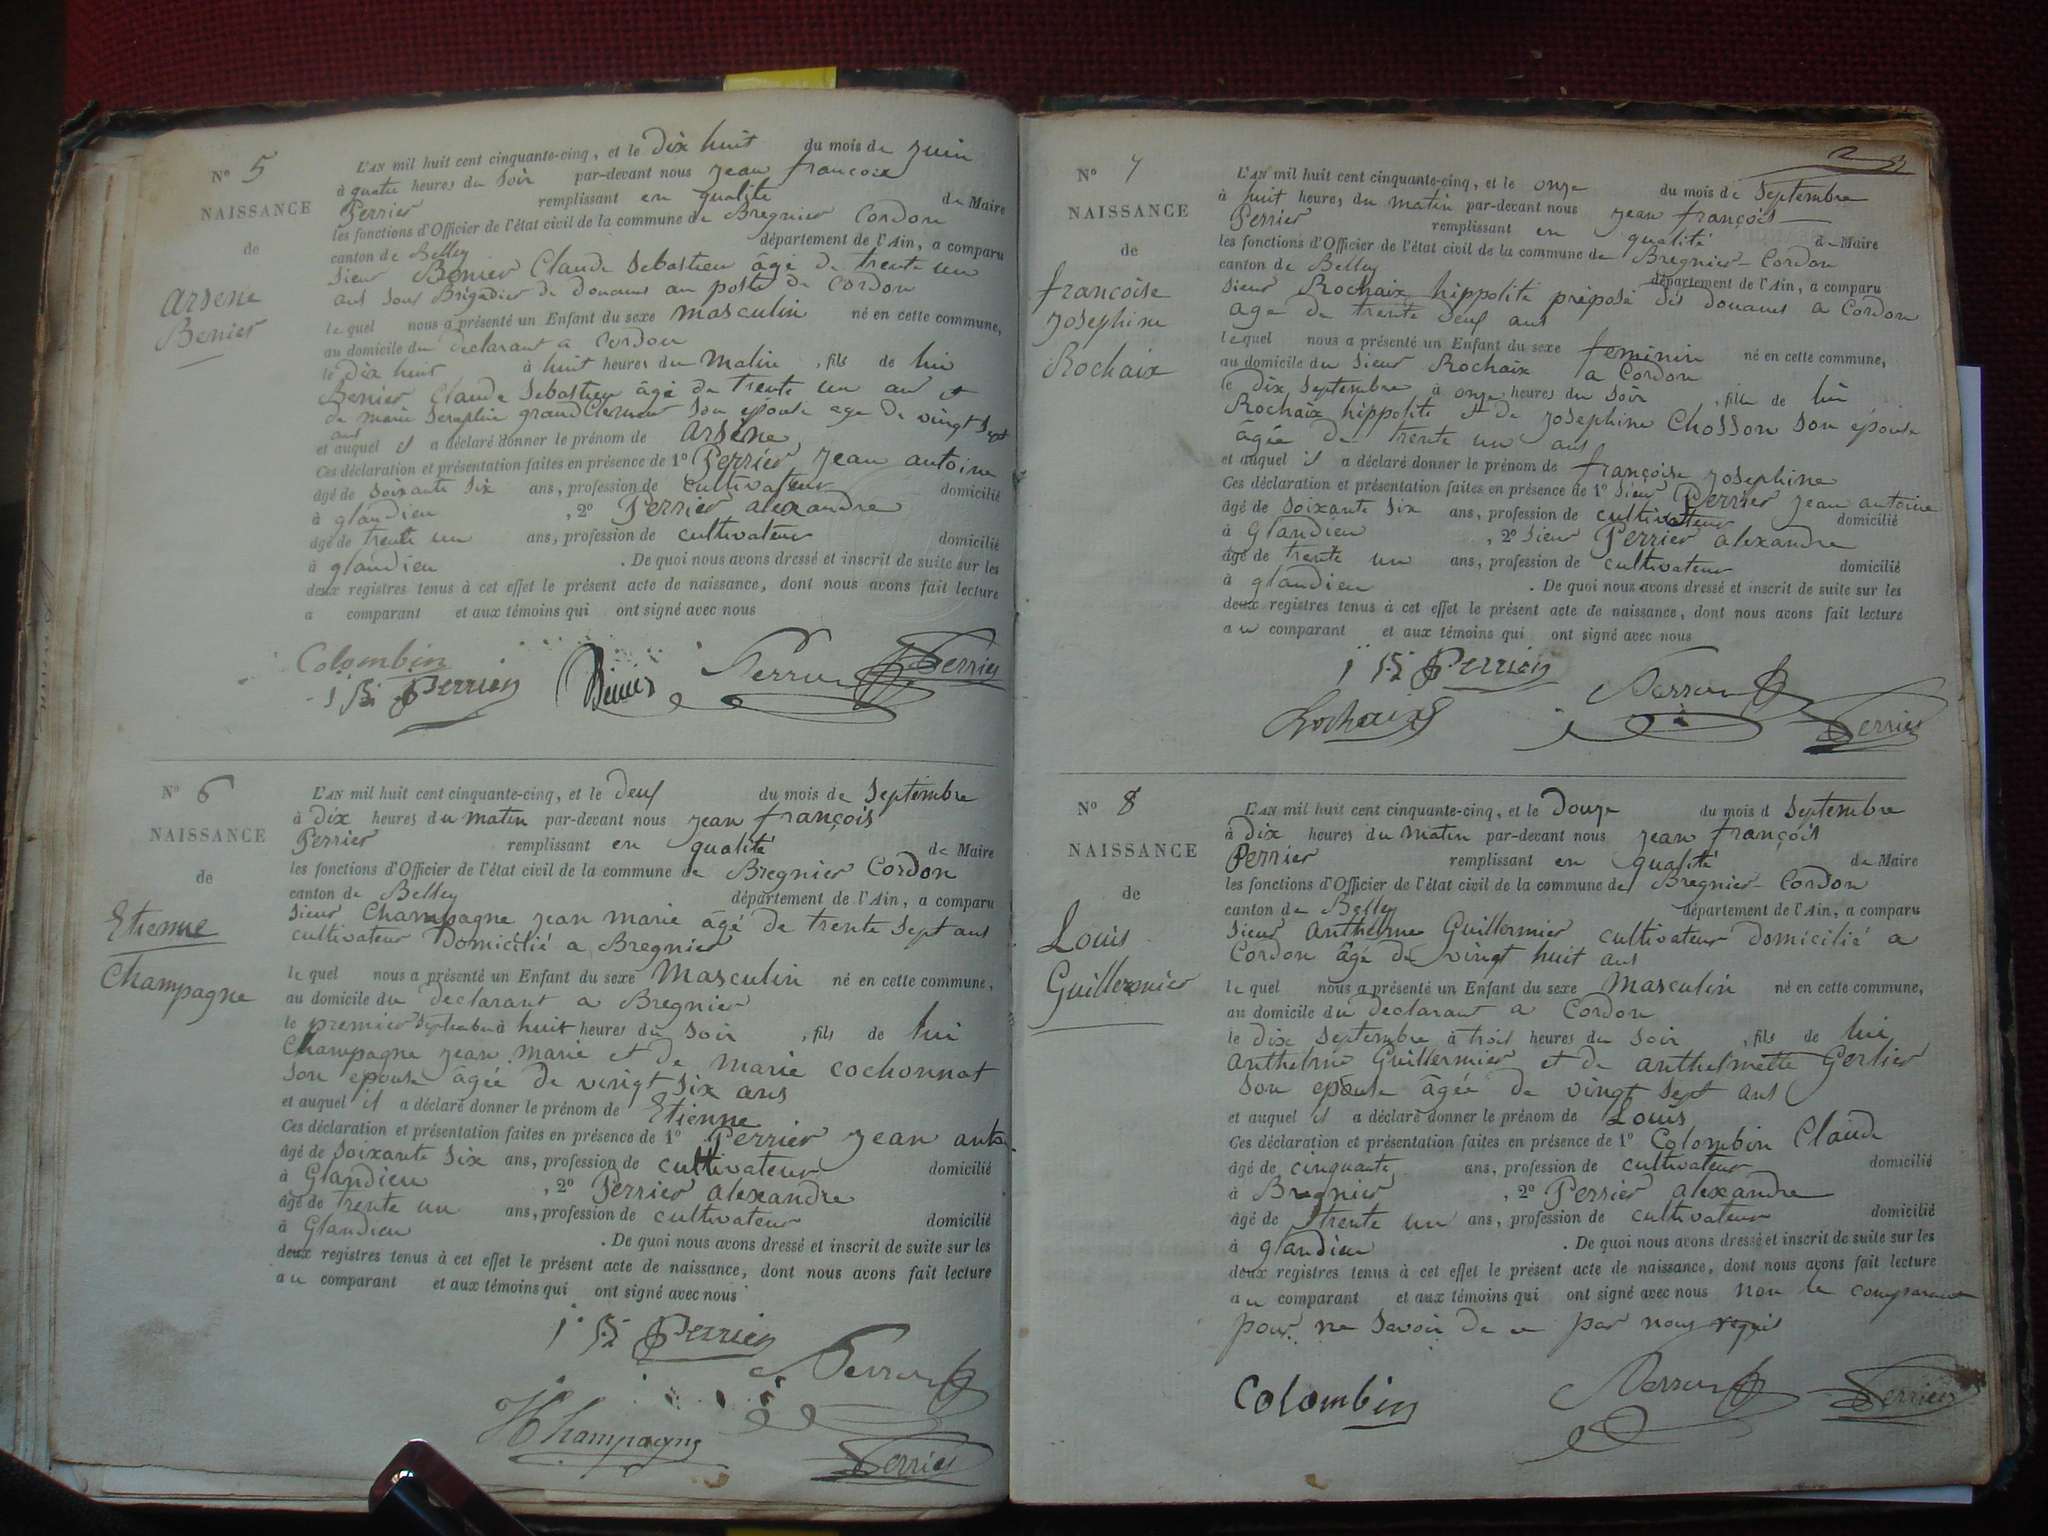 No 5
NAISSANCE
de
Arsene
Benier
L'AN mil huit cent cinquante-cinq, et le dix huit du mois de juin
à quatre heures du Soir par-devant nous jean françois
Perrier remplissant en qualité de Maire
les fonctions d'Officier de l'état civil de la commune de Bregnier Cordon
canton de Belley département de l'Ain, a comparu
Sieur Benier Claude Sebastien âgé de trente un
ans Sous Brigadier de douanes au poste de Cordon
le quel nous a présenté un Enfant du sexe masculin né en cette commune,
au domicile du declarant a Cordon
le dix huit à huit heures du Matin, fils de lui
Benier Claude Sebastien âgé de trente un ans et
de marie Seraphie grand Clement Son épouse age de vingt Sept
ans
et auquel il a déclaré donner le prénom de arsène
Ces déclaration et présentation faites en présence de 1o Perrier jean antoine
âgé de Soixante Six ans, profession de cultivateur domicilié
à glandieu, 2o Perrier alexandre
âgé de trente un ans, profession de cultivateur domicilié
à glandieu. De quoi nous avons dressé et inscrit de suite sur les
deux registres tenus à cet effet le présent acte de naissance, dont nous avons fait lecture
a comparant et aux témoins qui ont signé avec nous
Colombin
Perrier Benier Perrier Perrier
No 6
NAISSANCE
de
Etienne
Champagne
L'AN mil huit cent cinquante-cinq, et le deux du mois de Septembre
à dix heures du matin par-devant nous jean françois
Perrier remplissant en qualité de Maire
les fonctions d'Officier de l'état civil de la commune de Bregnier Cordon
canton de Belley département de l'Ain, a comparu
Sieur Champagne jean marie âgé de trente Sept ans
cultivateur domicilié a Bregnier
le quel nous a présenté un Enfant du sexe Masculin né en cette commune,
au domicile du declarant a Bregnier
le premier Septembre à huit heures du Soir, fils de lui
Champagne jean marie et de marie cochonnat
Son epouse âgée de vingt Six ans
et auquel il a déclaré donner le prénom de Etienne
Ces déclaration et présentation faites en présence de 1o Perrier jean anto
âgé de Soixante Six ans, profession de cultivateur domicilié
à Glandieu, 2o Perrier alexandre
âgé de trente un ans, profession de cultivateur domicilié
à Glandieu. De quoi nous avons dressé et inscrit de suite sur les
deux registres tenus à cet effet le présent acte de naissance, dont nous avons fait lecture
au comparant et aux témoins qui ont signé avec nous
Perrier
Perrier
Champagne Perrier
2
No 7
NAISSANCE
de
françoise
josephine
Rochaix
L'AN mil huit cent cinquante-cinq, et le onze du mois de Septembre
à huit heures du matin par-devant nous jean françois
Perrier remplissant en qualité de Maire
les fonctions d'Officier de l'état civil de la commune de Bregnier-Cordon
canton de Belley département de l'Ain, a comparu
Sieur Rochaix hippolite préposé des douanes a Cordon
age de trente deux ans
le quel nous a présenté un Enfant du sexe feminin né en cette commune,
au domicile du Sieur Rochaix a Cordon
le dix Septembre à onze heures du Soir, fille de lui
Rochaix hippolite et de josephine Chosson Son épouse
âgée de trente un ans
et auquel il a déclaré donner le prénom de françoise josephine
Ces déclaration et présentation faites en présence de 1o Sieur Perrier jean antoine
âgé de Soixante Six ans, profession de cultivateur domicilié
à Glandieu, 2o Sieur Perrier alexandre
âgé de trente un ans, profession de cultivateur domicilié
à glandieu. De quoi nous avons dressé et inscrit de suite sur les
deux registres tenus à cet effet le présent acte de naissance, dont nous avons fait lecture
au comparant et aux témoins qui ont signé avec nous
Perrier
Rochaix Perrier Perrier
No 8
NAISSANCE
de
Louis
Guillermier
L'AN mil huit cent cinquante-cinq, et le Douze du mois d Septembre
à dix heures du matin par-devant nous jean françois
Perrier remplissant en qualité de Maire
les fonctions d'Officier de l'état civil de la commune de Bregnier-Cordon
canton de Belley département de l'Ain, a comparu
Sieur Anthelme Guillermier cultivateur domicilié a
Cordon âgé de vingt huit ans
le quel nous a présenté un Enfant du sexe Masculin né en cette commune,
au domicile du declarant a Cordon
le dix Septembre à trois heures du Soir, fils de lui
Anthelme Guillermier et de anthelmette Gerlier
Son epouse âgée de vingt Sept ans
et auquel il a déclaré donner le prénom de Louis
Ces déclaration et présentation faites en présence de 1o Colombin Claude
âgé de cinquante ans, profession de cultivateur domicilié
à Bregnier, 2o Perrier alexandre
âgé de trente un ans, profession de cultivateur domicilié
à glandieu. De quoi nous avons dressé et inscrit de suite sur les
deux registres tenus à cet effet le présent acte de naissance, dont nous avons fait lecture
au comparant et aux témoins qui ont signé avec nous non le comparant
pour ne Savoir de ce par nous requis
Colombin Perrier Perrier